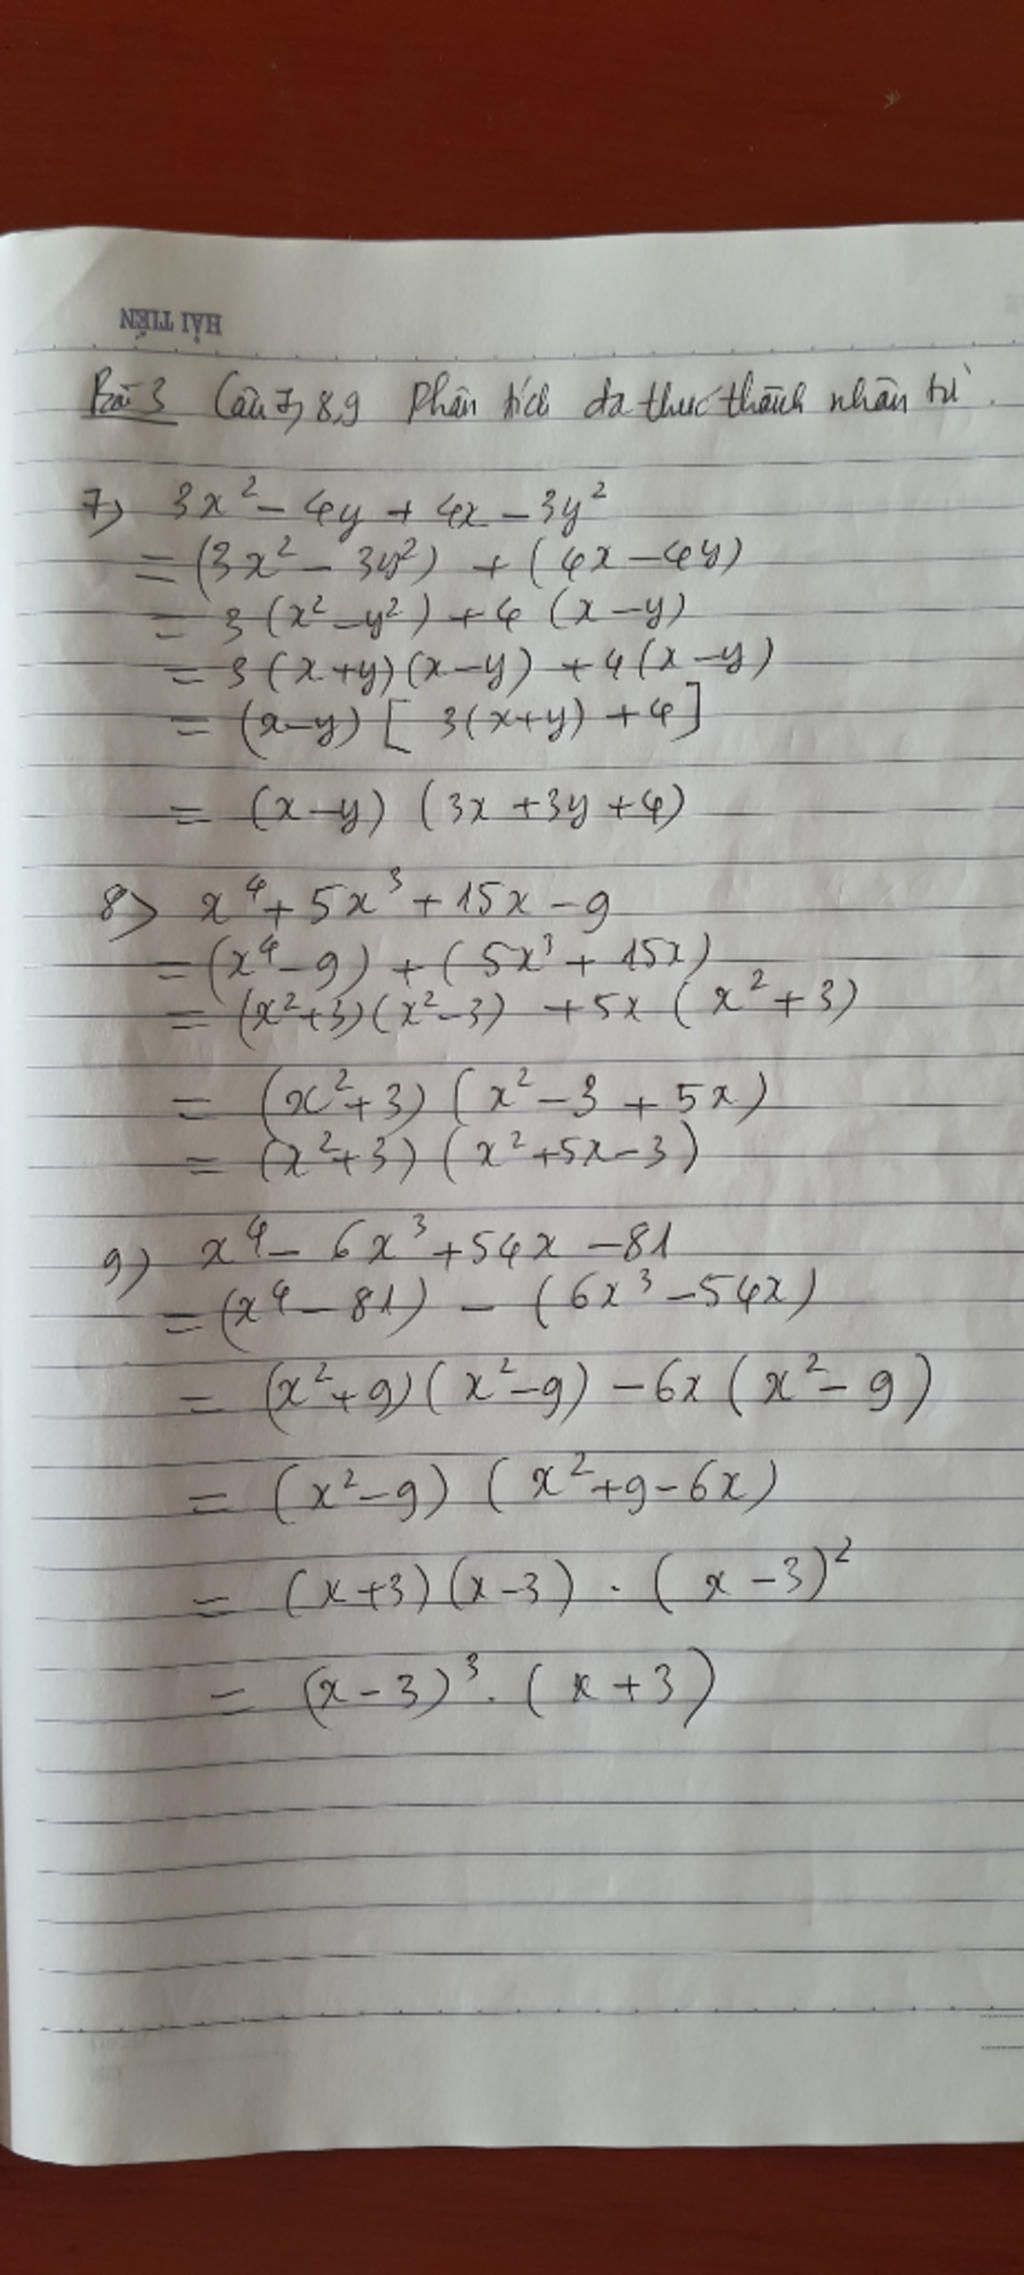 HẢI TIẾN
Bài 3 Câu 7, 8, 9 Phân tích đa thức thành nhân tử.
7) 3x² - 4y + 4x - 3y²
= (3x² - 3y²) + (4x - 4y)
= 3(x² - y²) + 4(x - y)
= 3(x+y)(x-y) + 4(x-y)
= (x-y)[3(x+y) + 4]
= (x-y)(3x + 3y + 4)
8) x⁴ + 5x³ + 15x - 9
= (x⁴ - 9) + (5x³ + 15x)
= (x²+3)(x²-3) + 5x(x²+3)
= (x²+3)(x² - 3 + 5x)
= (x²+3)(x²+5x-3)
9) x⁴ - 6x³ + 54x - 81
= (x⁴ - 81) - (6x³ - 54x)
= (x²+9)(x²-9) - 6x(x²-9)
= (x²-9)(x²+9-6x)
= (x+3)(x-3) . (x-3)²
= (x-3)³ . (x+3)